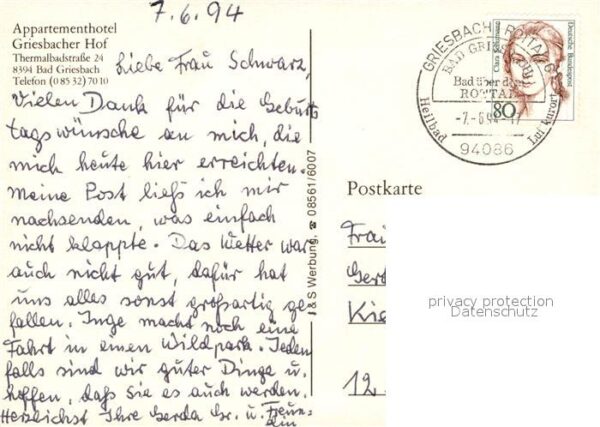 7.6.94
Appartementhotel
Griesbacher Hof
Thermalbadstraße 24
8394 Bad Griesbach
Telefon (0 85 32) 70 10
Liebe Frau Schwarz,
Vielen Dank für die Geburts
tagswünsche an mich, die
mich heute hier erreichten.
Meine Post ließ ich mir
nachsenden, was einfach
nicht klappte. Das Wetter war
auch nicht gut, dafür hat
uns alles sonst großartig ge
fallen. Inge macht noch eine
Fahrt in einen Wildpark. Jeden
falls sind wir guter Dinge u.
hoffen, daß Sie es auch werden.
Herzlichst Ihre Gerda Gr. u. Freun-
din
I & S Werbung, ☎ 08561/6007
GRIESBACH I ROTTAL
BAD GRIESBACH
Bad über dem
ROTTAL
-7.-6.94-17
94086
Heilbad
Luftkurort
Clara Schumann
Deutsche Bundespost
80
Postkarte
Gerd
Kie
12
privacy protection
Datenschutz